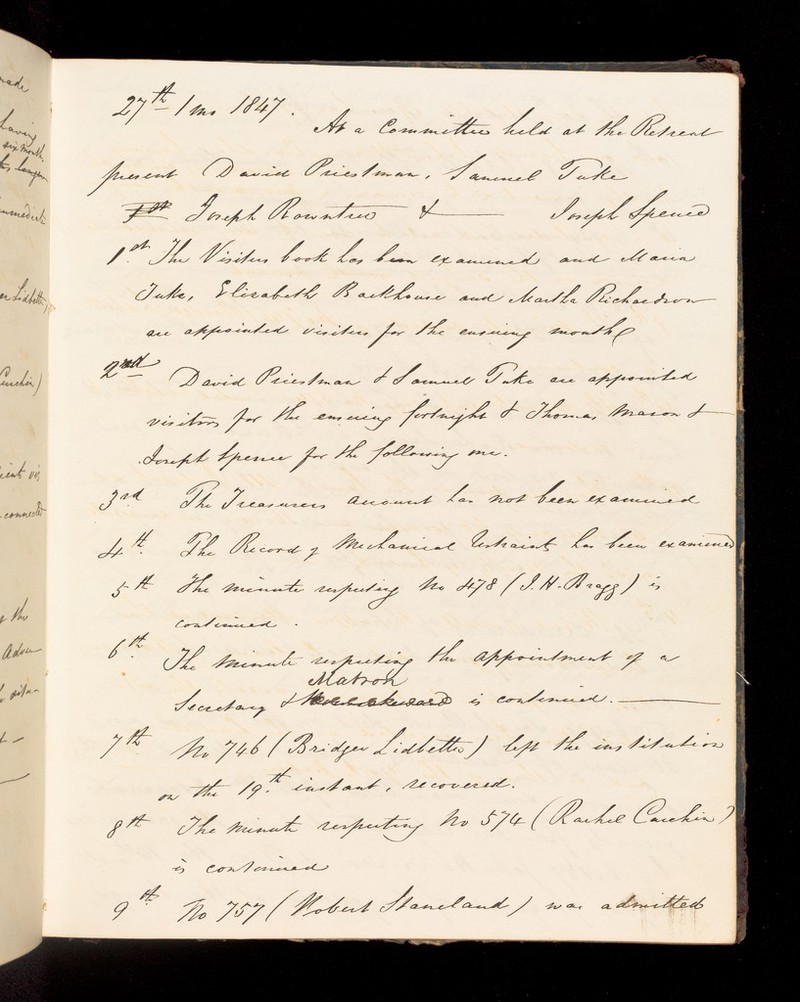 27th 1 mo 1847.
At a Committee held at the Retreat
present David Priestman, Samuel Tuke
1st Joseph Rowntree & Joseph Spence
1st The Visiters book has been examined and Maria
Tuke, Elizabeth Backhouse and Martha Richardson
are appointed visiters for the ensuing month
2nd David Priestman & Samuel Tuke are appointed
visitors for the ensuing fortnight & Thomas Mason &
Joseph Spence for the following one.
3rd The Treasurers account has not been examined
4th The Record of Mechanical restraint has been examined
5th The minute respecting No 478 (J. H. Bragg) is
continued.
6th The minute respecting the appointment of a
Matron
Secretary & is continued.
7th No 746 (Bridger Lidbetter) left the institution
on the 19th instant, recovered.
8th The minute respecting No 574 (Rachel )
is continued
9th No 757 (Robert Staneland) was admitted